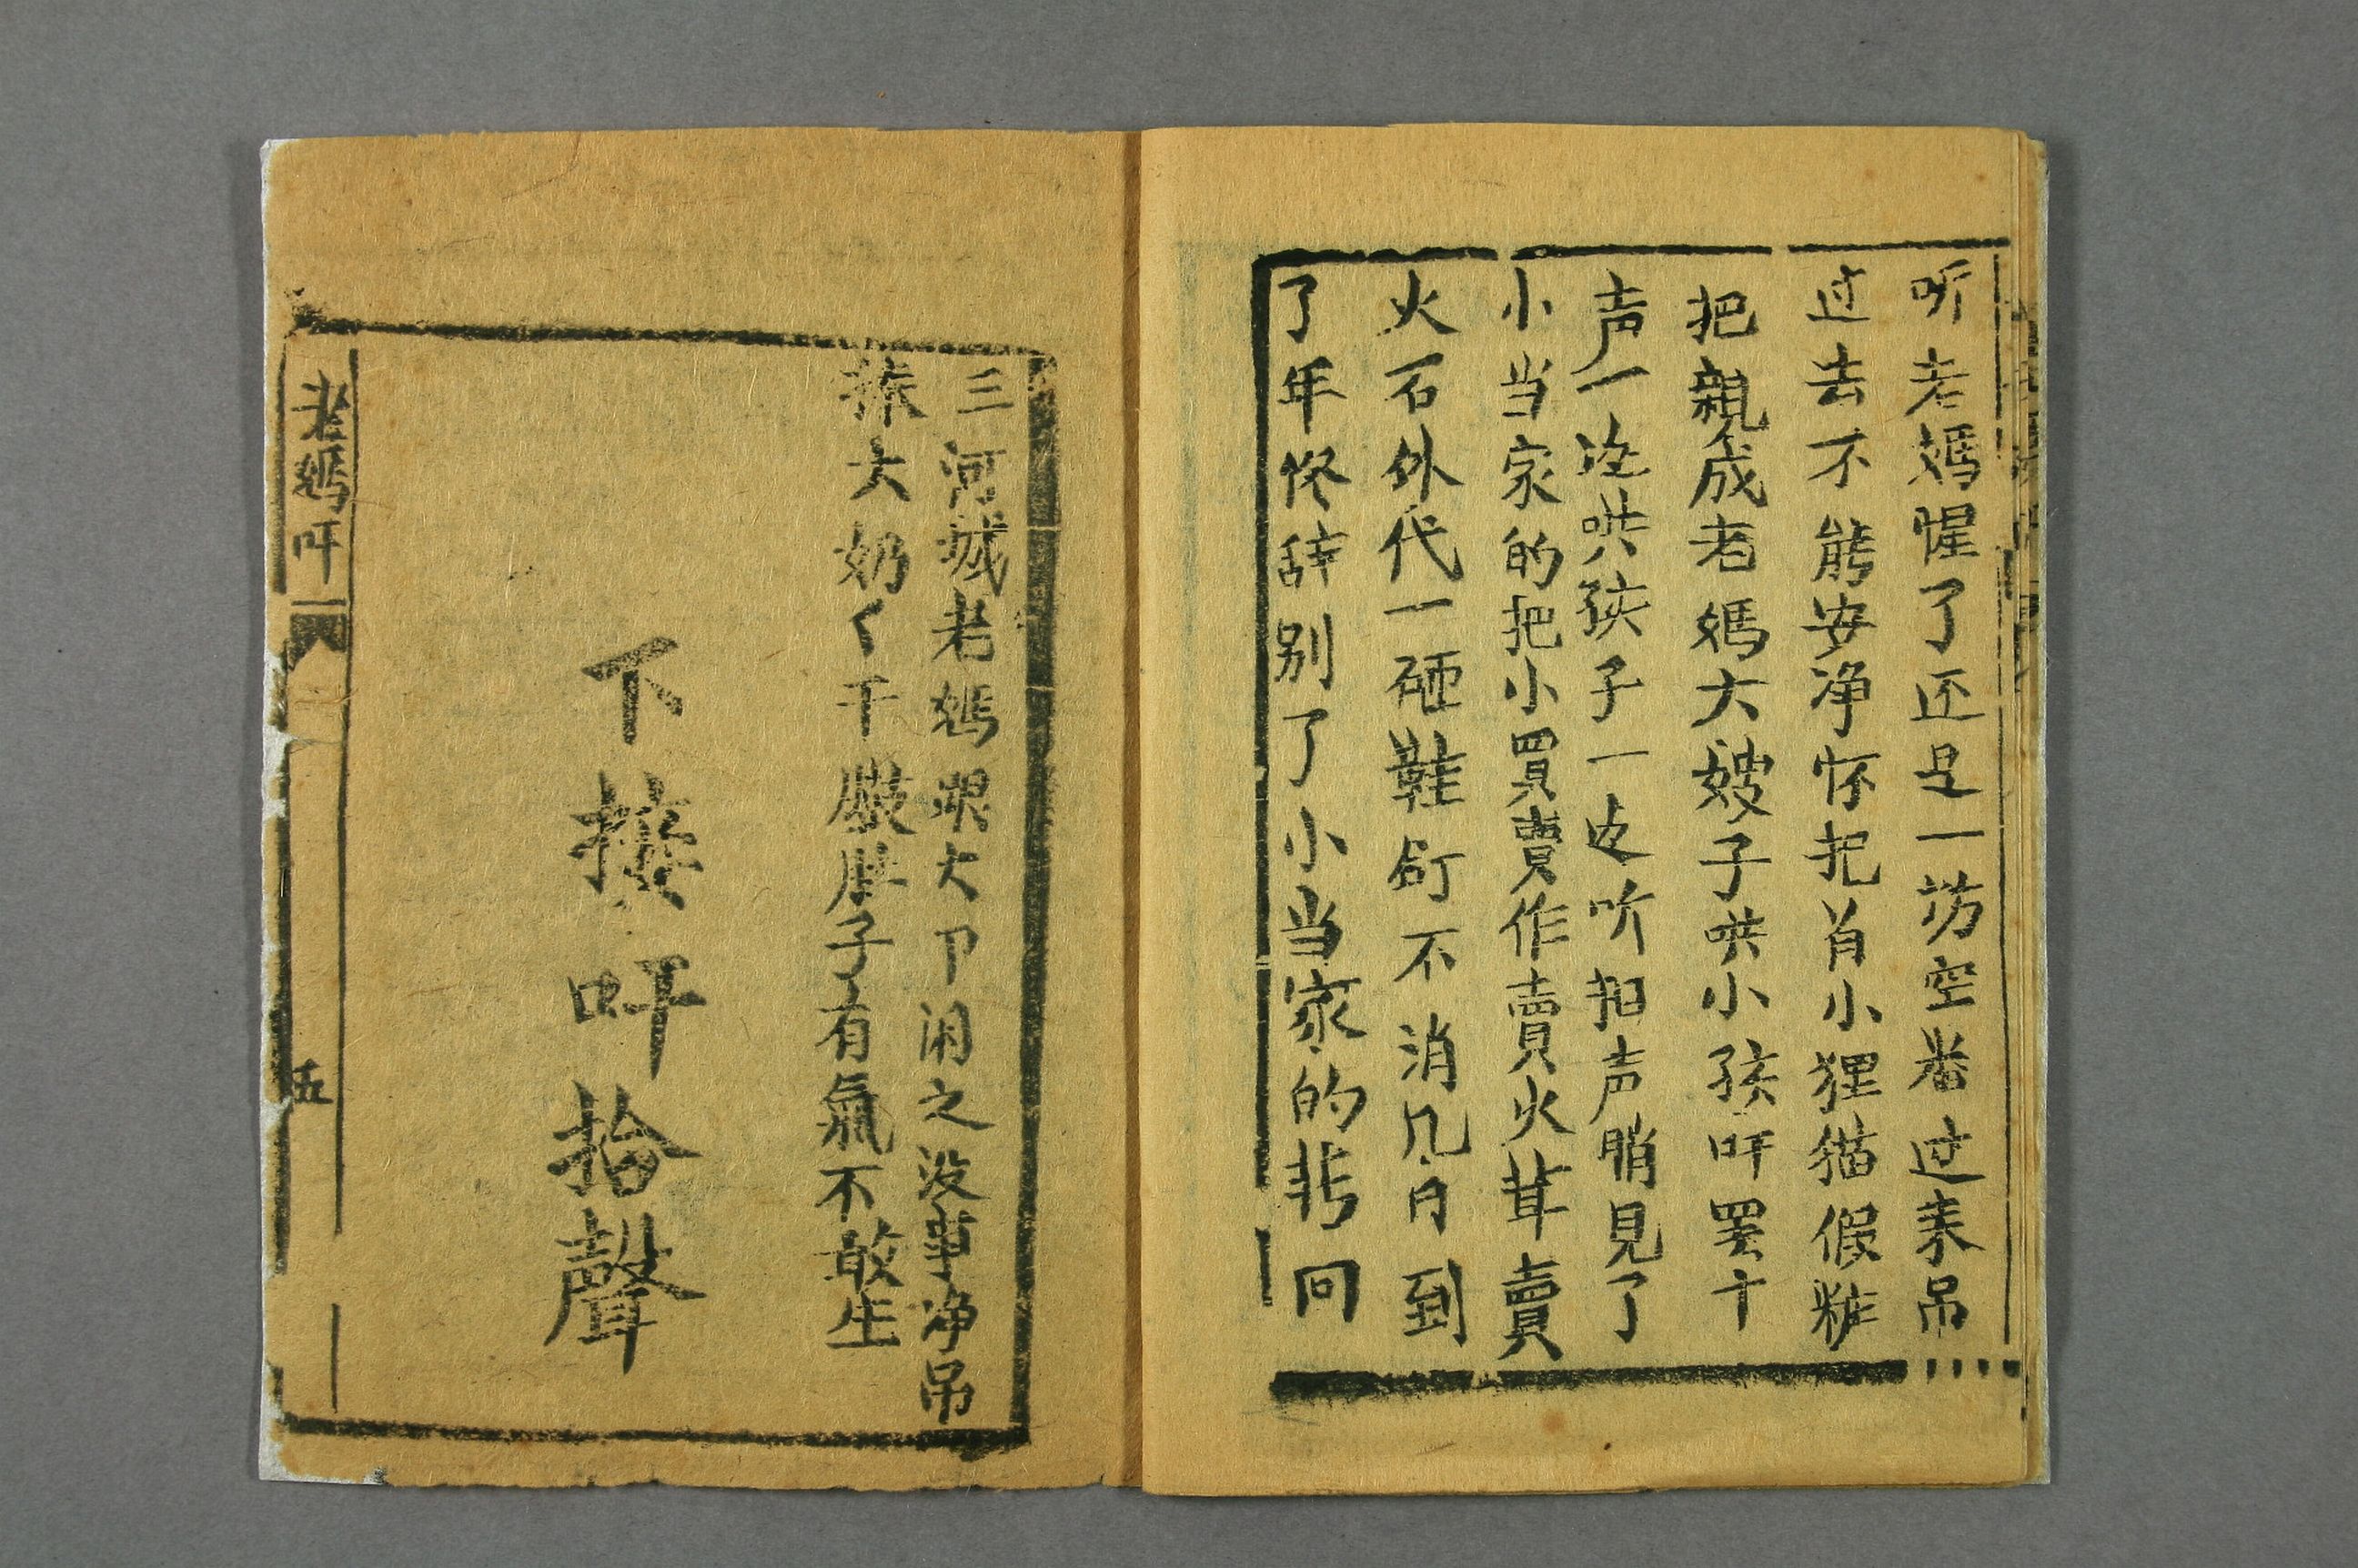 听老媽惺了还是一塲空者过来吊
过去不能安净怀把肖小狸猫假粧
把親成老媽大嫂子哄小孩吁罢十
声一边哄孩子一边听拍声哨見了
小当家的把小買賣作賣火茸賣
火石外代一砸鞋訂不消几月到
了年佟辞别了小当家的非回
三河城老媽跟大卩闲之没事净吊
猴大奶〱干鼓肚子有氣不敢生
下接吁拾聲
老媽吁 五